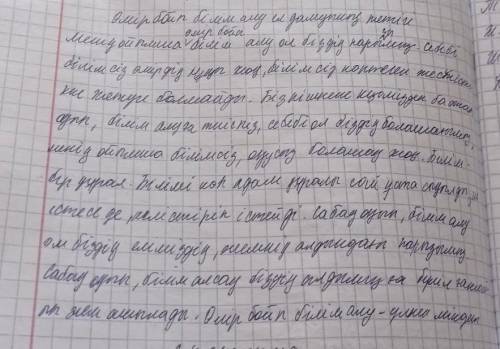 Өмір бойы білім алу ел дамуының негізі
Менің ойымша өмір бойы білім алу ол біздің парызымыз себебі
білімсіз өмірдің мәні жоқ, білімсіз көптеген жетістік
ке жетуге болмайды. Біз кішкене кезімізден бастап
оқып, білім алуға тиіспіз, себебі ол біздің болашағымыз,
менің ойымша білімсіз, оқусыз болашақ жоқ. Білім
бір құрал. Білімі жоқ адам құралы жоқ ұста сияқты,
істесе де, кемістірек істейді. Сабақ оқып, білім алу
ол біздің еліміздің, жеміздің алдындағы парызымыз
Сабақ оқып, білім алсақ біздің алдымызда бүкіл
ашылады. Өмір бойы білім алу - үлкен міндет